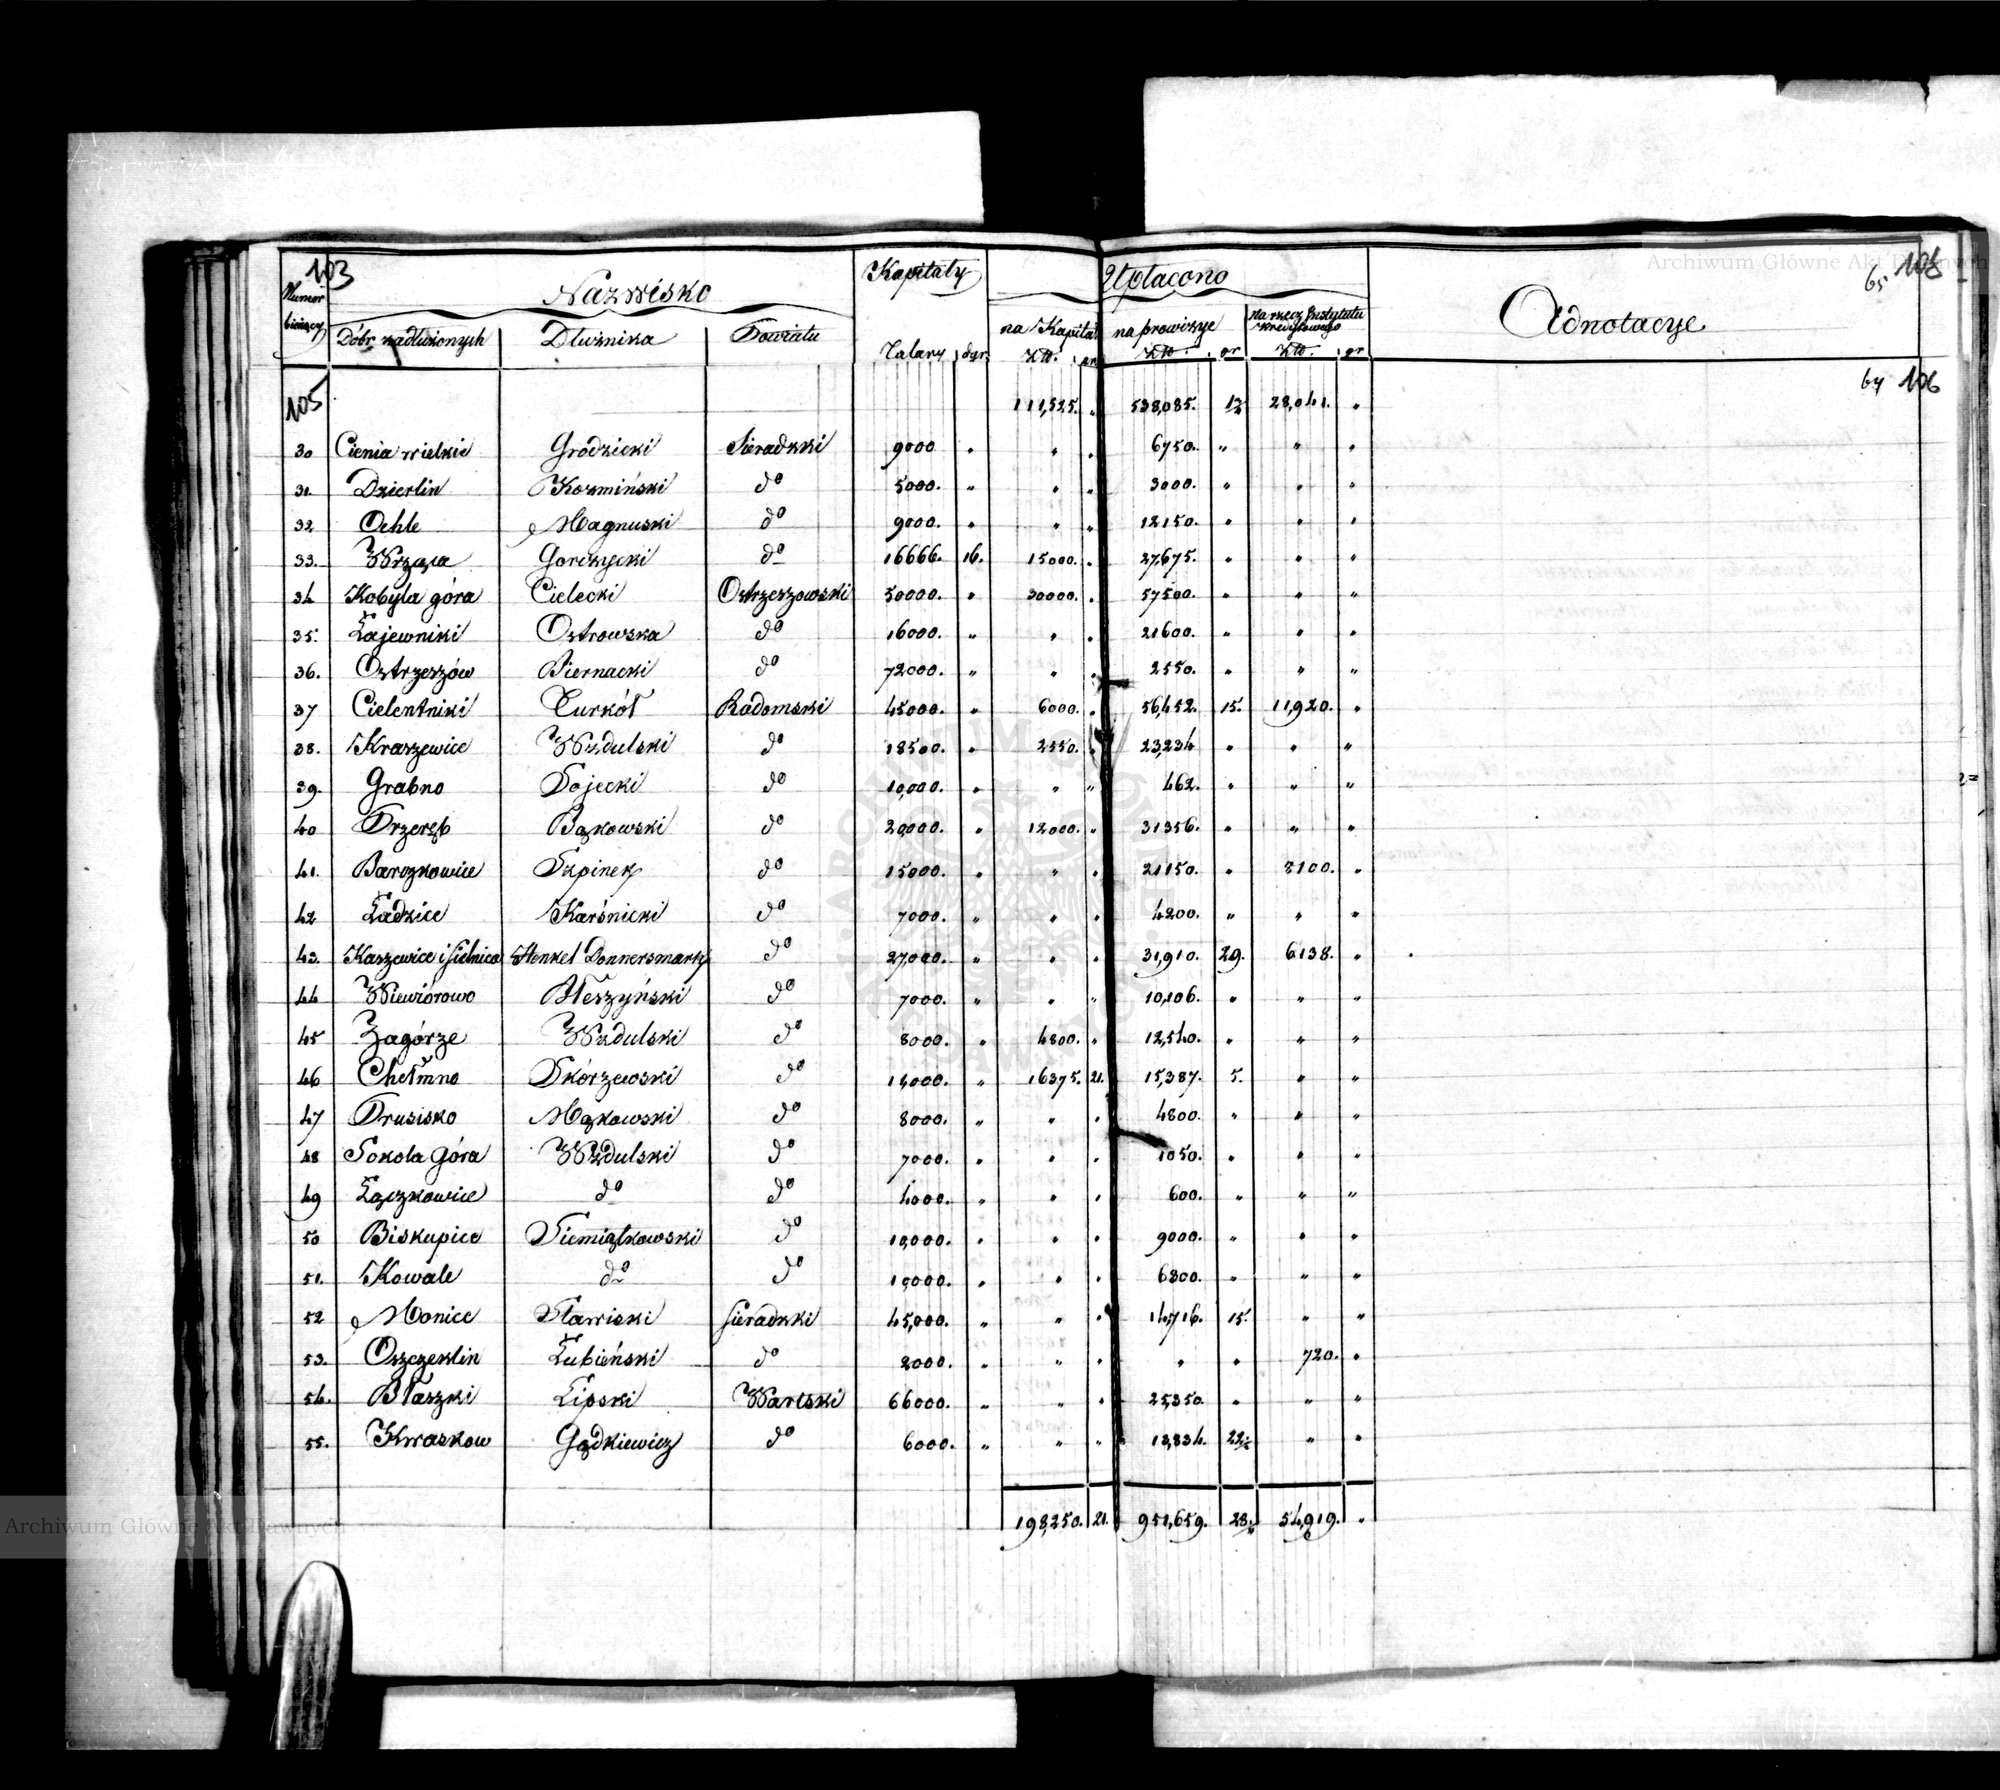 103
Numer bieżący
Nazwisko
Kapitały
Upłacono
Adnotacye
65 106
Dóbr zadłużonych Dłużnika Powiatu
Talary dgr.
na Kapitał na prowizye na rzecz Instytutu Kredytowego
Złt. gr Złt. gr Złt. gr
105 111,525. „ 538,085. 12 28,041. „ 64 106
30 Cienia wielkie Grodzicki Sieradzki 9000 „ „ „ 6750. „ „ „
31. Dzierlin Kozmiński do 5000. „ „ „ 3000. „ „ „
32 Oehle Magnuski do 9000. „ „ „ 12150. „ „ „
33. Wrząca Gorczycki do 16666. 16. 15000. „ 27,675. „ „ „
34 Kobyla góra Cielecki Ostrzeszowski 50000. „ 30000. „ 57500. „ „ „
35. Łajewniki Ostrowska do 16000. „ „ „ 21600. „ „ „
36. Ostrzeszów Biernacki do 72000. „ „ „ 2550. „ „ „
37 Cielentniki Turkół Radomski 45000. „ 6000. „ 56,452. 15. 11,920. „
38. Kraszewice Wzdulski do 18500. „ 2550. „ 23,234 „ „ „
39. Grabno Sojecki do 10,000. „ „ „ 462. „ „ „
40 Przeręb Bąkowski do 20,000. „ 12000. „ 31356. „ „ „
41. Barczkowice Szpinek do 15000. „ „ „ 21150. „ 8100. „
42 Ładzice Karśnicki do 7000. „ „ „ 4200. „ „ „
43. Kaszewice i Sielnica Henkel Donnersmark do 27,000. „ „ „ 31,910. 29. 6138. „
44 Wiewiórowo Błeszyński do 7000. „ „ „ 10,106. „ „ „
45 Zagórze Wzdulski do 8000. „ 4800. „ 12,540. „ „ „
46 Chełmno Skórzewski do 14000. „ 16375. 21. 15,387. 5. „ „
47 Prusisko Mąkowski do 8000. „ „ „ 4800. „ „ „
48 Sokola Góra Wzdulski do 7000. „ „ „ 1050. „ „ „
49 Łączkowice do do 4000. „ „ „ 600. „ „ „
50 Biskupice Siemiątkowski do 10,000. „ „ „ 9000. „ „ „
51. Kowale do do 10,000. „ „ „ 6300. „ „ „
52 Monice Stawiski Sieradzki 45,000. „ „ „ 14,716. 15. „ „
53. Oszczeklin Łubieński do 2000. „ „ „ „ „ 720. „
54. Błaszki Lipski Wartski 66000. „ „ „ 25,350. „ „ „
55. Kwaskow Gądkiewicz do 6000. „ „ „ 13,834. 22½ „ „
198,250. 21. 951,659. 28. 54,919. „
Archiwum Główne Akt Dawnych
Archiwum Główne Akt Dawnych